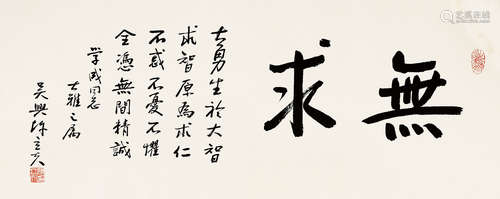 無求
大勇生於大智
求智原為求仁
不惑不憂不懼
全憑無間精誠
學成同志
大雅之屬
吳興陳立夫